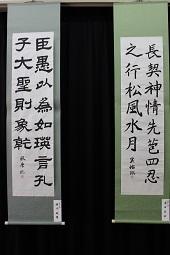 長契神情先苞四忍
之行松風水月
臣愚以為如瑛言孔
子大聖則象乾